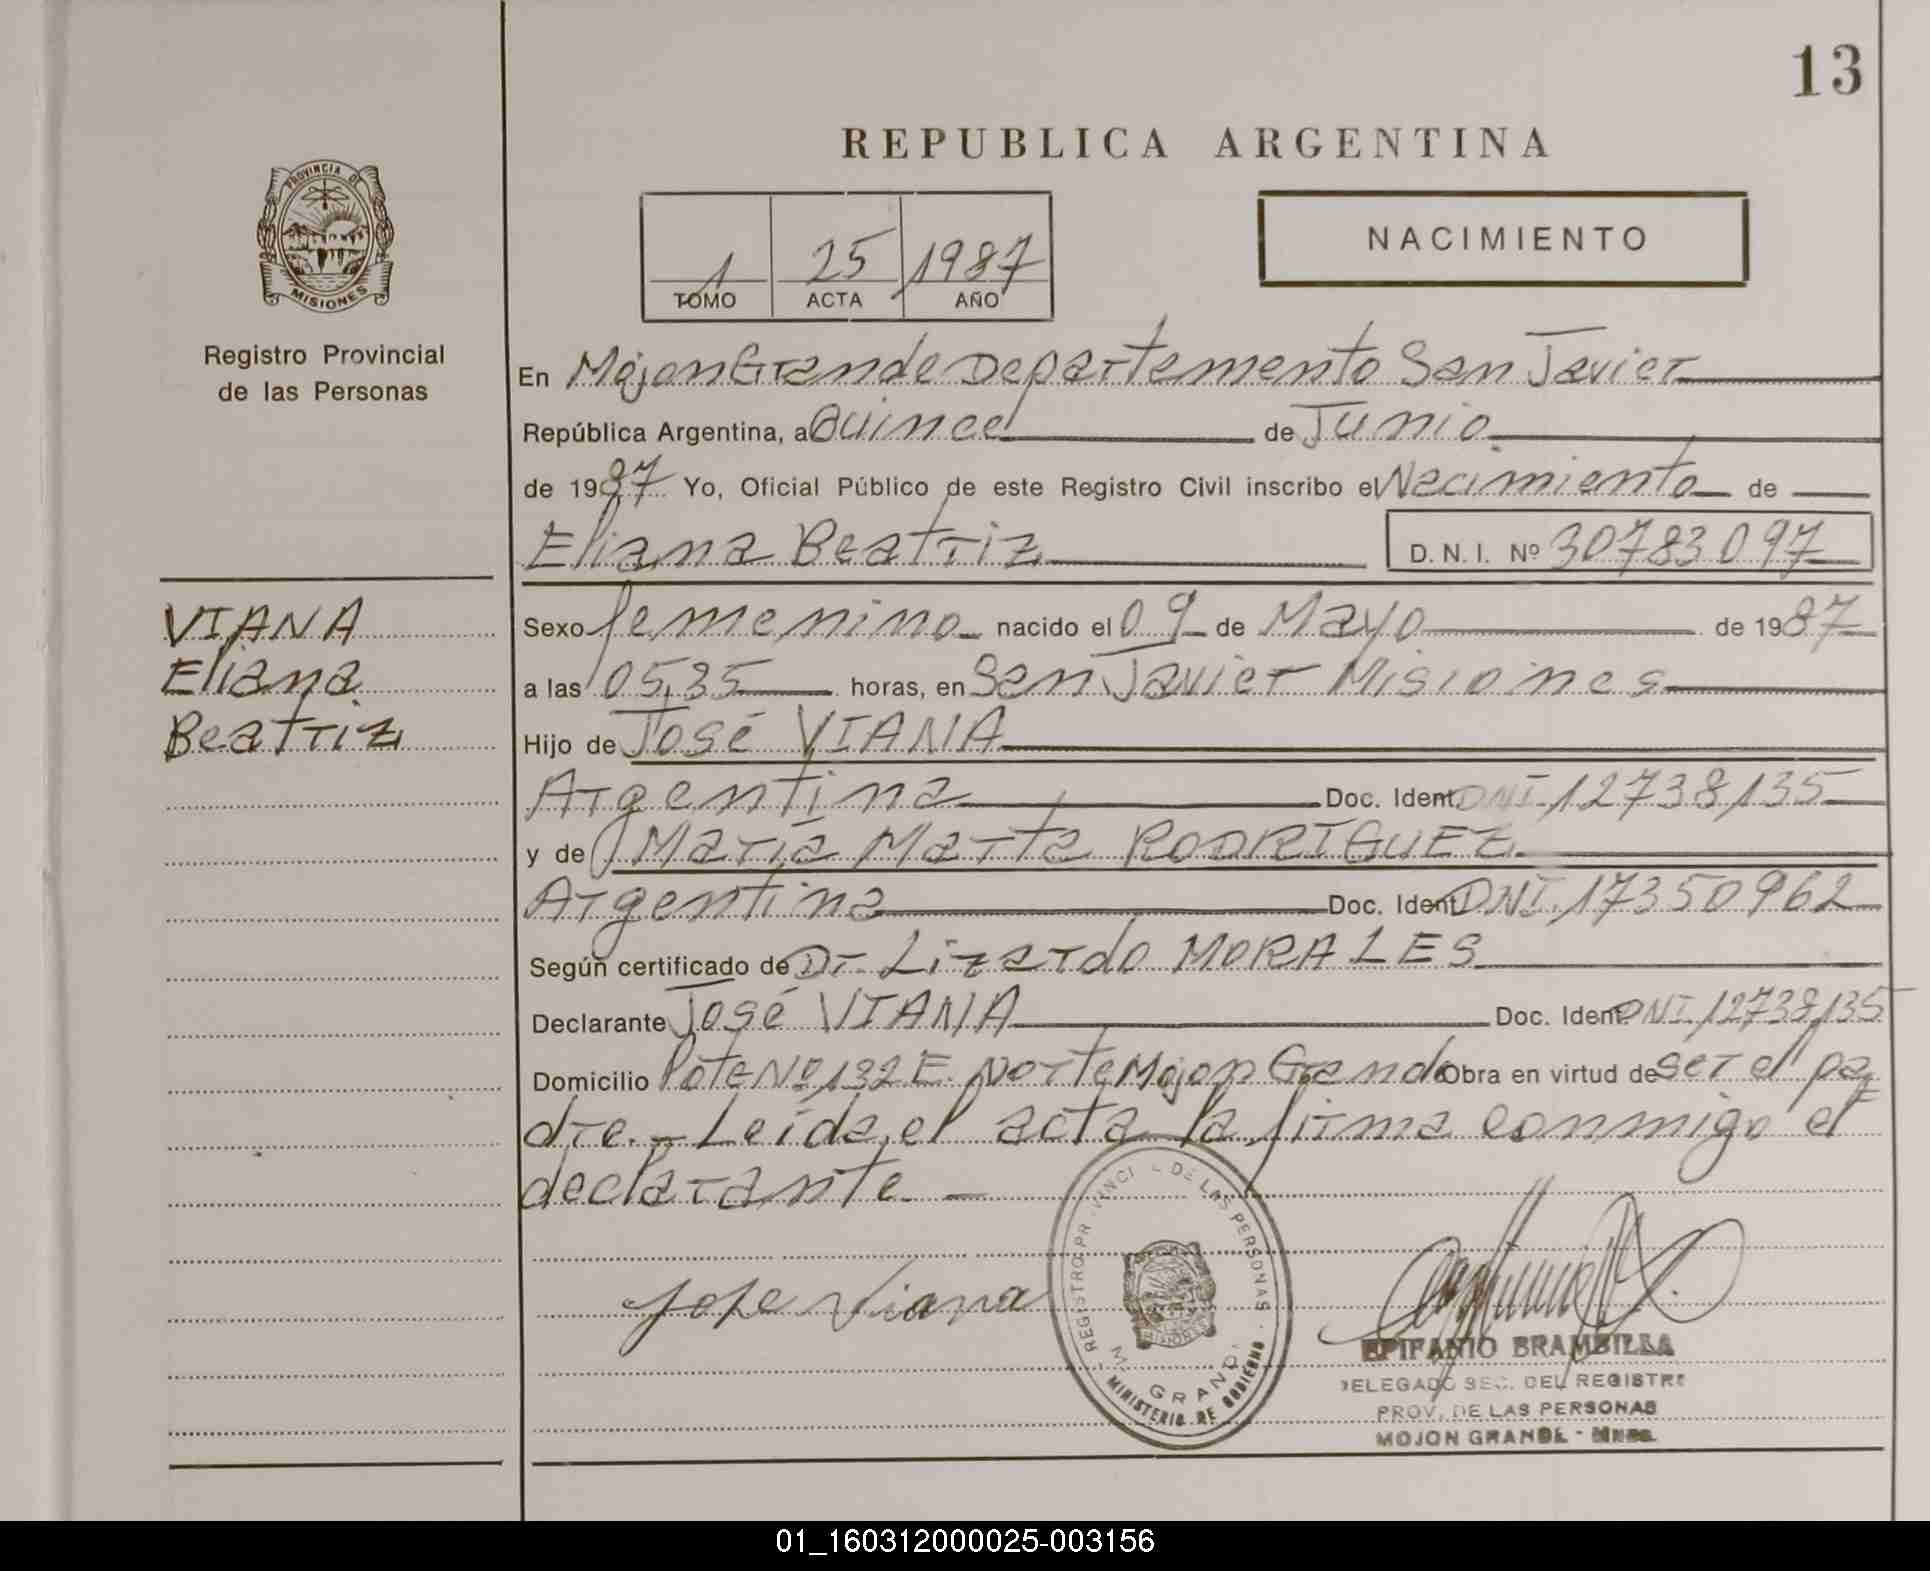 13
REPUBLICA ARGENTINA
PROVINCIA DE
MISIONES
Registro Provincial
de las Personas
1 25 1987
TOMO ACTA AÑO
NACIMIENTO
En Mojon Grande Departamento San Javier
República Argentina, a Quince de Junio
de 1987 Yo, Oficial Público de este Registro Civil inscribo el Nacimiento de
Eliana Beatriz D.N.I. Nº 30783097
VIANA
Eliana
Beatriz
Sexo femenino nacido el 09 de Mayo de 1987
a las 05,35 horas, en San Javier Misiones
Hijo de José VIANA
Argentina Doc. Ident. DNI. 12738135
y de María Marta RODRIGUEZ
Argentina Doc. Ident. DNI. 17350962
Según certificado de Dr. Lizardo MORALES
Declarante José VIANA Doc. Ident. DNI. 12738135
Domicilio Lote Nº 132 E. Norte Mojon Grande Obra en virtud de ser el pa
dre.- Leída el acta la firma conmigo el
declarante. —
REGISTRO PR VINCI L DE LAS PERSONAS
MISIONES
M. GRAND
MINISTERIO DE GOBIERNO
Jose Viana
EPIFANIO BRAMBILLA
DELEGADO SEC. DEL REGISTR
PROV. DE LAS PERSONAS
MOJON GRANDE - Mnes.
01_160312000025-003156